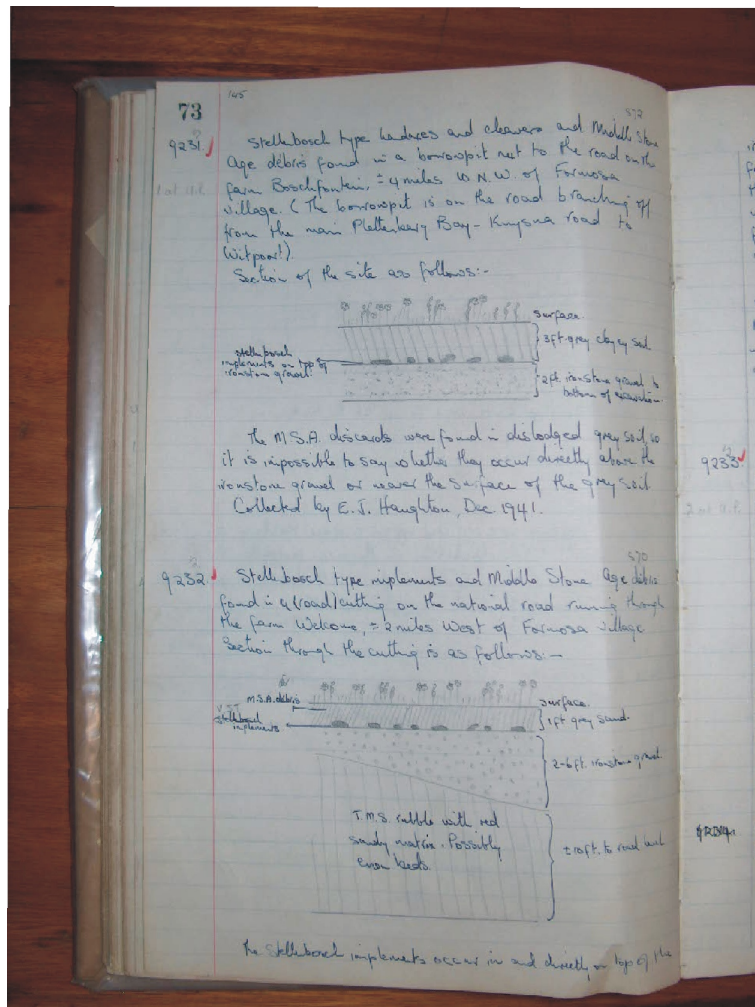 73
145
572
9231
Stellenbosch type handaxes and cleavers and Middle Stone
Age debris found in a borrowpit next to the road on the
farm Boschfontein, ± 4 miles to N.W. of Formosa
village. (The borrowpit is on the road branching off
from the main Plettenberg Bay - Knysna road to
Witpoort).
Section of the site as follows:-
surface
3ft. grey clayey soil
Stellenbosch
implements on top of
ironstone gravel
2ft. ironstone gravel to
bottom of excavation
The M.S.A. discards were found in dislodged grey soil, so
it is impossible to say whether they occur directly above the
ironstone gravel or nearer the surface of the grey soil
Collected by E.J. Haughton, Dec. 1941.
9233
570
9232
Stellenbosch type implements and Middle Stone Age debris
found in a road cutting on the national road running through
the farm Welcome, ± 2 miles West of Formosa village
Section through the cutting is as follows:-
M.S.A. debris
surface
Stellenbosch
implements
1ft grey sand.
2-6ft. ironstone gravel
T.M.S. rubble with red
sandy matrix. Possibly
Enon beds.
±10ft. to road level
The Stellenbosch implements occur in and directly on top of the